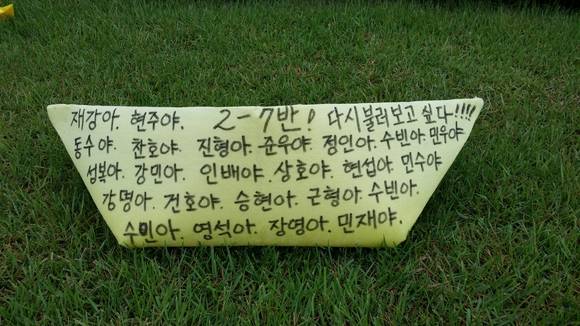 재강아. 현주야. 2-7반! 다시불러보고 싶다!!!!
동수야. 찬호야. 진형아. 준우야. 정인아. 수빈아. 민우야
성복아. 강민아. 인배야. 상호야. 현섭아. 민수야
강명아. 건호야. 승현아. 근형아. 수빈아.
수민아. 영석아. 장영아. 민재야.